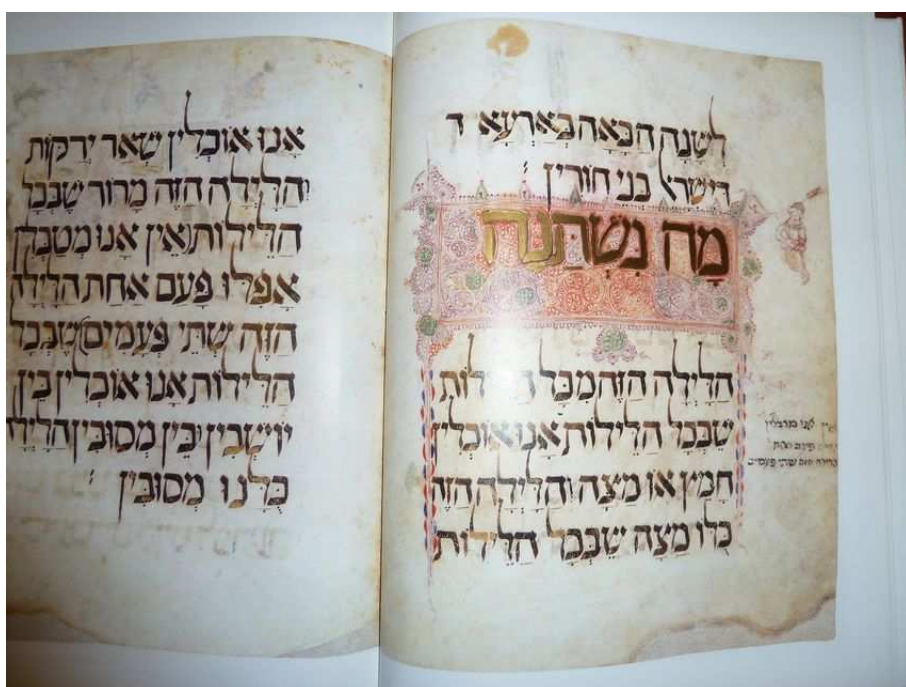 לשנה הבאה בארעא ד
דישראל בני חורין
מה נשתנה
הלילה הזה מכל הלילות
שבכל הלילות אנו אוכלין
חמץ או מצה והלילה הזה
כלו מצה שבכל הלילות
הלילה הזה שתי פעמים
אנו אוכלין שאר ירקות
והלילה הזה מרור שבכל
הלילות אין אנו מטבלין
אפלו פעם אחת הלילה
הזה שתי פעמים שבכל
הלילות אנו אוכלין בין
יושבין ובין מסובין הלילה
כלנו מסובין